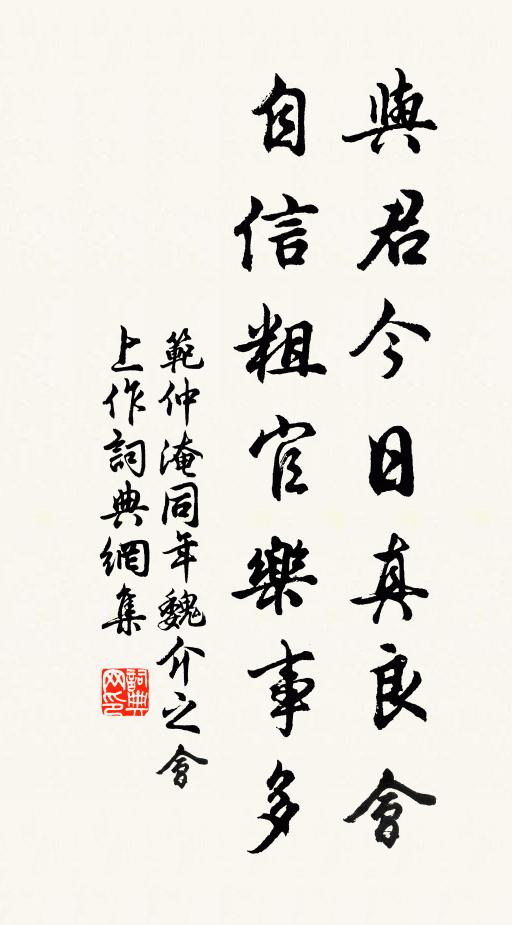 與君今日真良會
自信粗官樂事多
範仲淹同年魏介之會
上作詞典網集
詞典网印